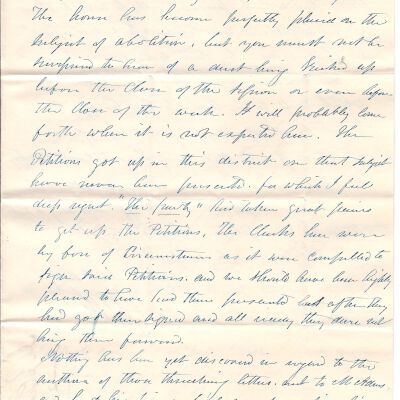 The house has become perfectly placid on the
subject of abolition, but you must not be
surprised to hear of a dust being kicked up
before the close of the session or even before
the close of the week. It will probably come
forth when it is not expected here. The
Petitions got up in this district on that subject
have never been presented. for which I feel
deep regret. "The party" had taken great pains
to get up the Petitions, The Clerks here were
by force of Circumstances as it were compelled to
sign said Petitions. and we should have been highly
pleased to have had them presented but after they
had got them signed and all ready they dare not
bring them forward.
Nothing has been yet discovered in regard to the
author of those threatening letters. sent to Mr Adams.